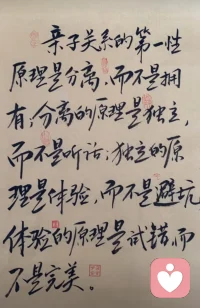 亲子关系的第一性
原理是分离，而不是拥
有；分离的原理是独立，
而不是听话；独立的原
理是体验，而不是避坑
体验的原理是试错，而
不是完美。